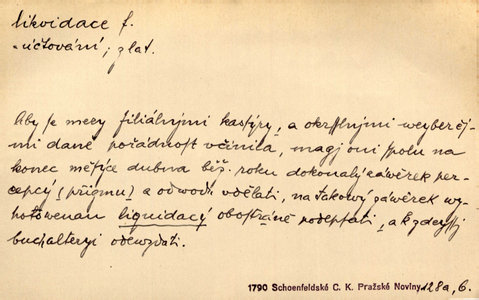 likvidace f.
- účtování; plat.
Aby se mezy filiálnjmi kastýry, a okrsslnjmi weyběrčj-
mi daně pořádnost včinila, magj oni spolu na
konec měsýce dubna běž. roku dokonalý záwěrek per-
cepcý (přigmu) a odwodu vdělati, na takowý záwěrek wy-
hotowenau liquidacý obostranně podepsati, a k zdegssj
buchalteryi odewzdati.
1790 Schoenfeldské C. K. Pražské Noviny 128a, 6.